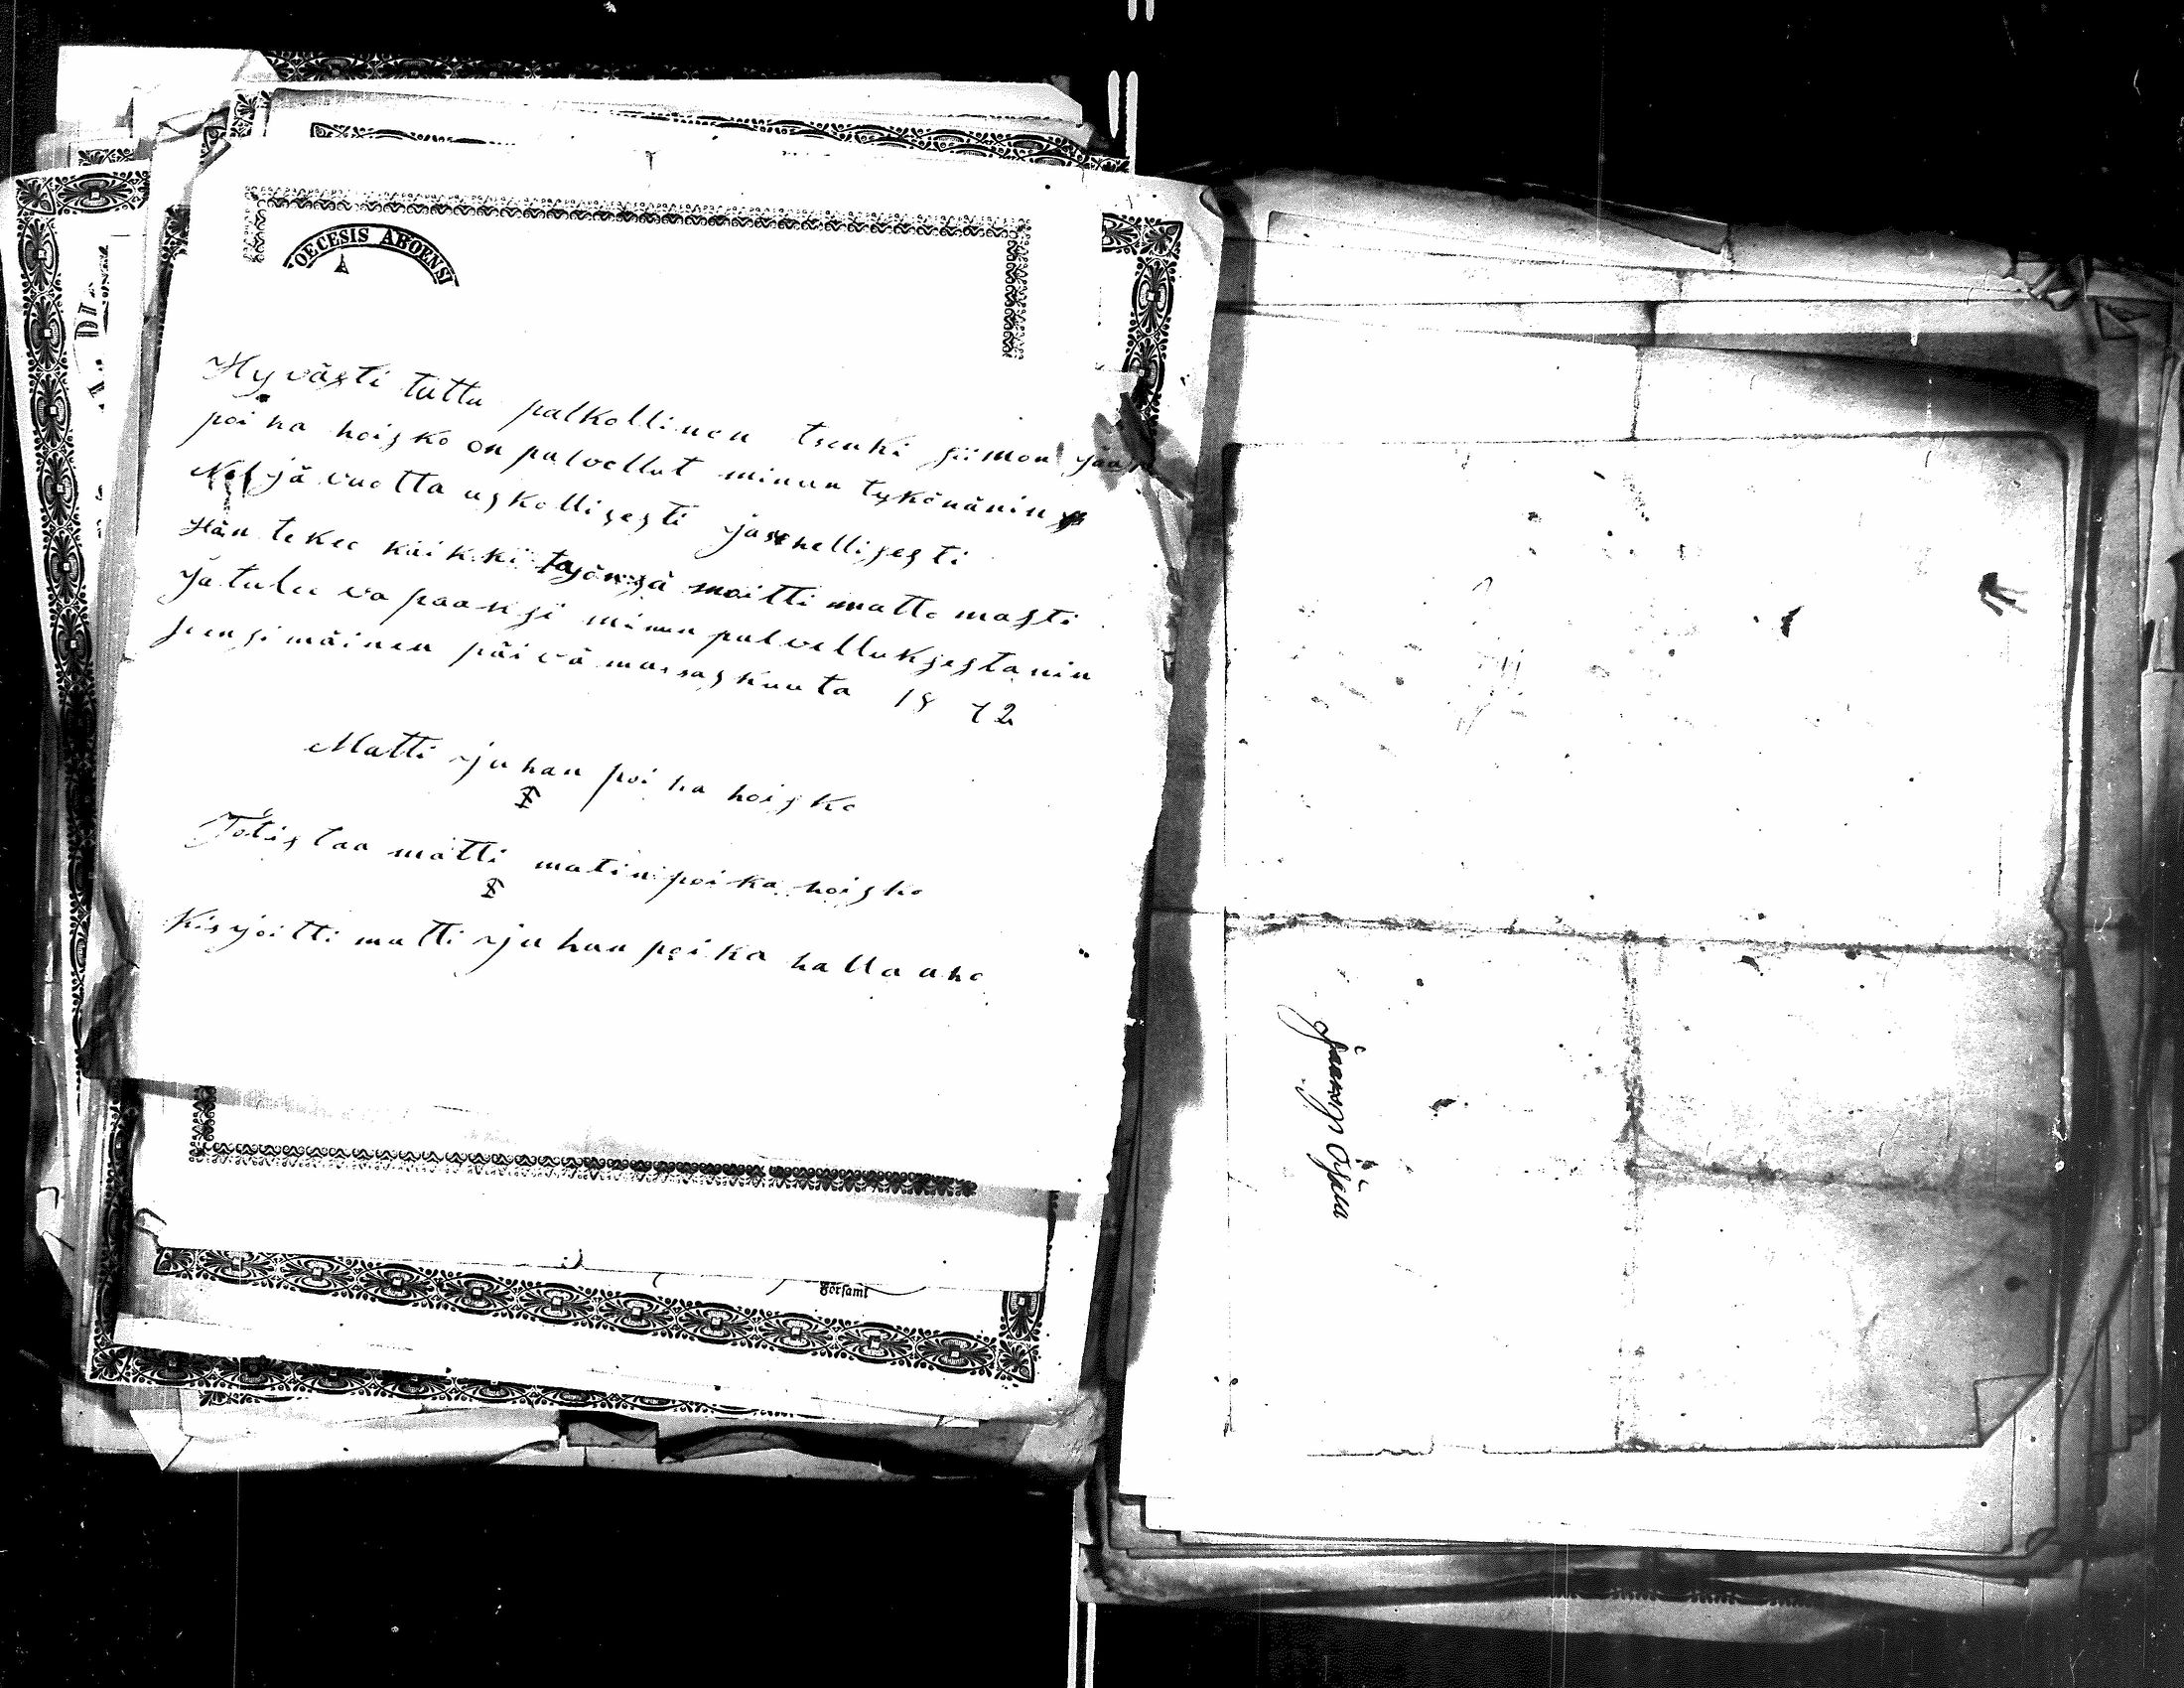 OECESIS ABOENSI
Hyvästi tuttu palkollinen trenki siimon jaa
poika hoisko on palvellut minun tykönänin
Neljä vuotta uskollisesti ja rehellisesti
Hän tekee kaikki työnsä moitti matto masti
ja tulee va paaksi minun palvelluksestanin
seensimäinen päivä marraskuuta 1872
Matti juhan poika hoisko
Totistaa matti matin poika hoisko
Kirjoitti matti juhan poika halla aho
Gorsamt